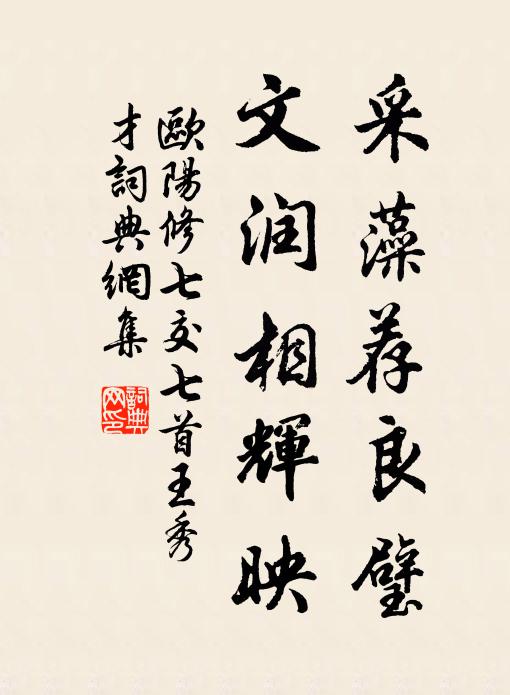 采藻荐良璧
文润相輝映
歐陽修七交七首王秀
才詞典網集
詞典
网印